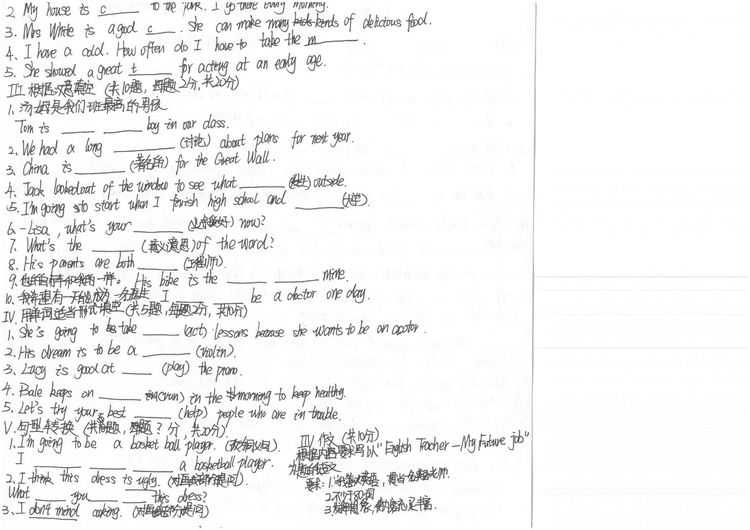 2. My house is c______ to the park. I go there every morning.
3. Mrs White is a good c____. She can make many kinds of delicious food.
4. I have a cold. How often do I have to take the m________.
5. She showed a great t_____ for acting at an early age.
III. 根据句意填空 (共10题, 每题2分, 共20分)
1. 汤姆是我们班最高的男孩
Tom is ____ ____ boy in our class.
2. We had a long ______ (讨论) about plans for next year.
3. China is ______ (著名的) for the Great Wall.
4. Jack looked out of the window to see what ______ (发生) outside.
5. I'm going to start when I finish high school and ______ (大学).
6. - Lisa, what's your ______ now?
7. What's the ______ (意义,意思) of the word?
8. His parents are both ______ (工程师).
9. His bike is the ____ ____ mine.
10. I ____ ____ be a doctor one day.
IV. 用单词适当形式填空 (共5题, 每题2分, 共10分)
1. She's going to take ______ (act) lessons because she wants to be an actor.
2. His dream is to be a ______ (violin).
3. Lucy is good at ____ (play) the piano.
4. Bale keeps on ______ (run) in the morning to keep healthy.
5. Let's try your best ______ (help) people who are in trouble.
V. 句型转换 (共 题, 每题 ? 分, 共20分)
1. I'm going to be a basketball player. (改为同义句)
I ____ ____ ____ a basketball player.
2. I think this dress is ugly. (对画线部分提问)
What ____ you ____ this dress?
3. I don't mind cooking. (对画线部分提问)
IV 作文 (共10分)
以"English Teacher — My Future job"
为题
要求: 1.
2. 不少于80词
3.